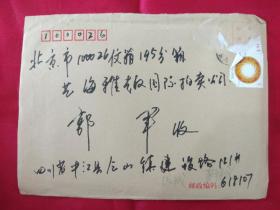 100026
北京市100026信箱195分箱
艺海雅本国际拍卖公司
郭军 收
四川省中江县仓山镇建设路121#
邮政编码：618107